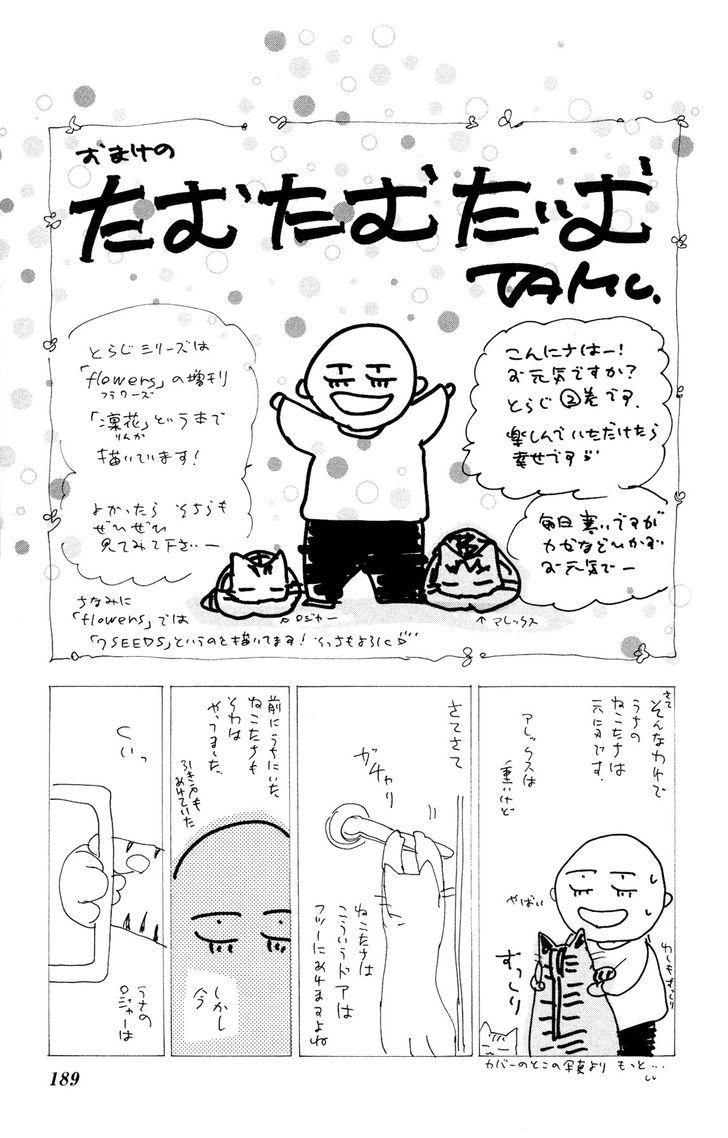 おまけの
たむたむたいむ
TAMU.
こんにちはー!
お元気ですか?
とらじ②巻です.
楽しんでいただけたら
幸せです
毎日寒いですが
カゼなどひかず
お元気でー
とらじシリーズは
「flowers」の増刊
フラワーズ
「凛花」という本で
りんか
描いています!
よかったら そちらも
ぜひぜひ
見てみて下さいー
ちなみに
「flowers」では
「7SEEDS」というのを描いてます! そっちもよろしく
↑ロジャー
↑アレックス
さて
そんなわけで
うちの
ねこたちは
元気です.
アレックスは
重いけど
やばい
ずっしり
カバーのとこの写真より もっと…
さてさて
ガチャリ
ねこたちは
こういうドアは
フツーにあけますよね
前にうちにいた
ねこたちも
それは
やってました.
引き戸も
あけていた
しかし
今
くいっ
うちの
ロジャーは
189